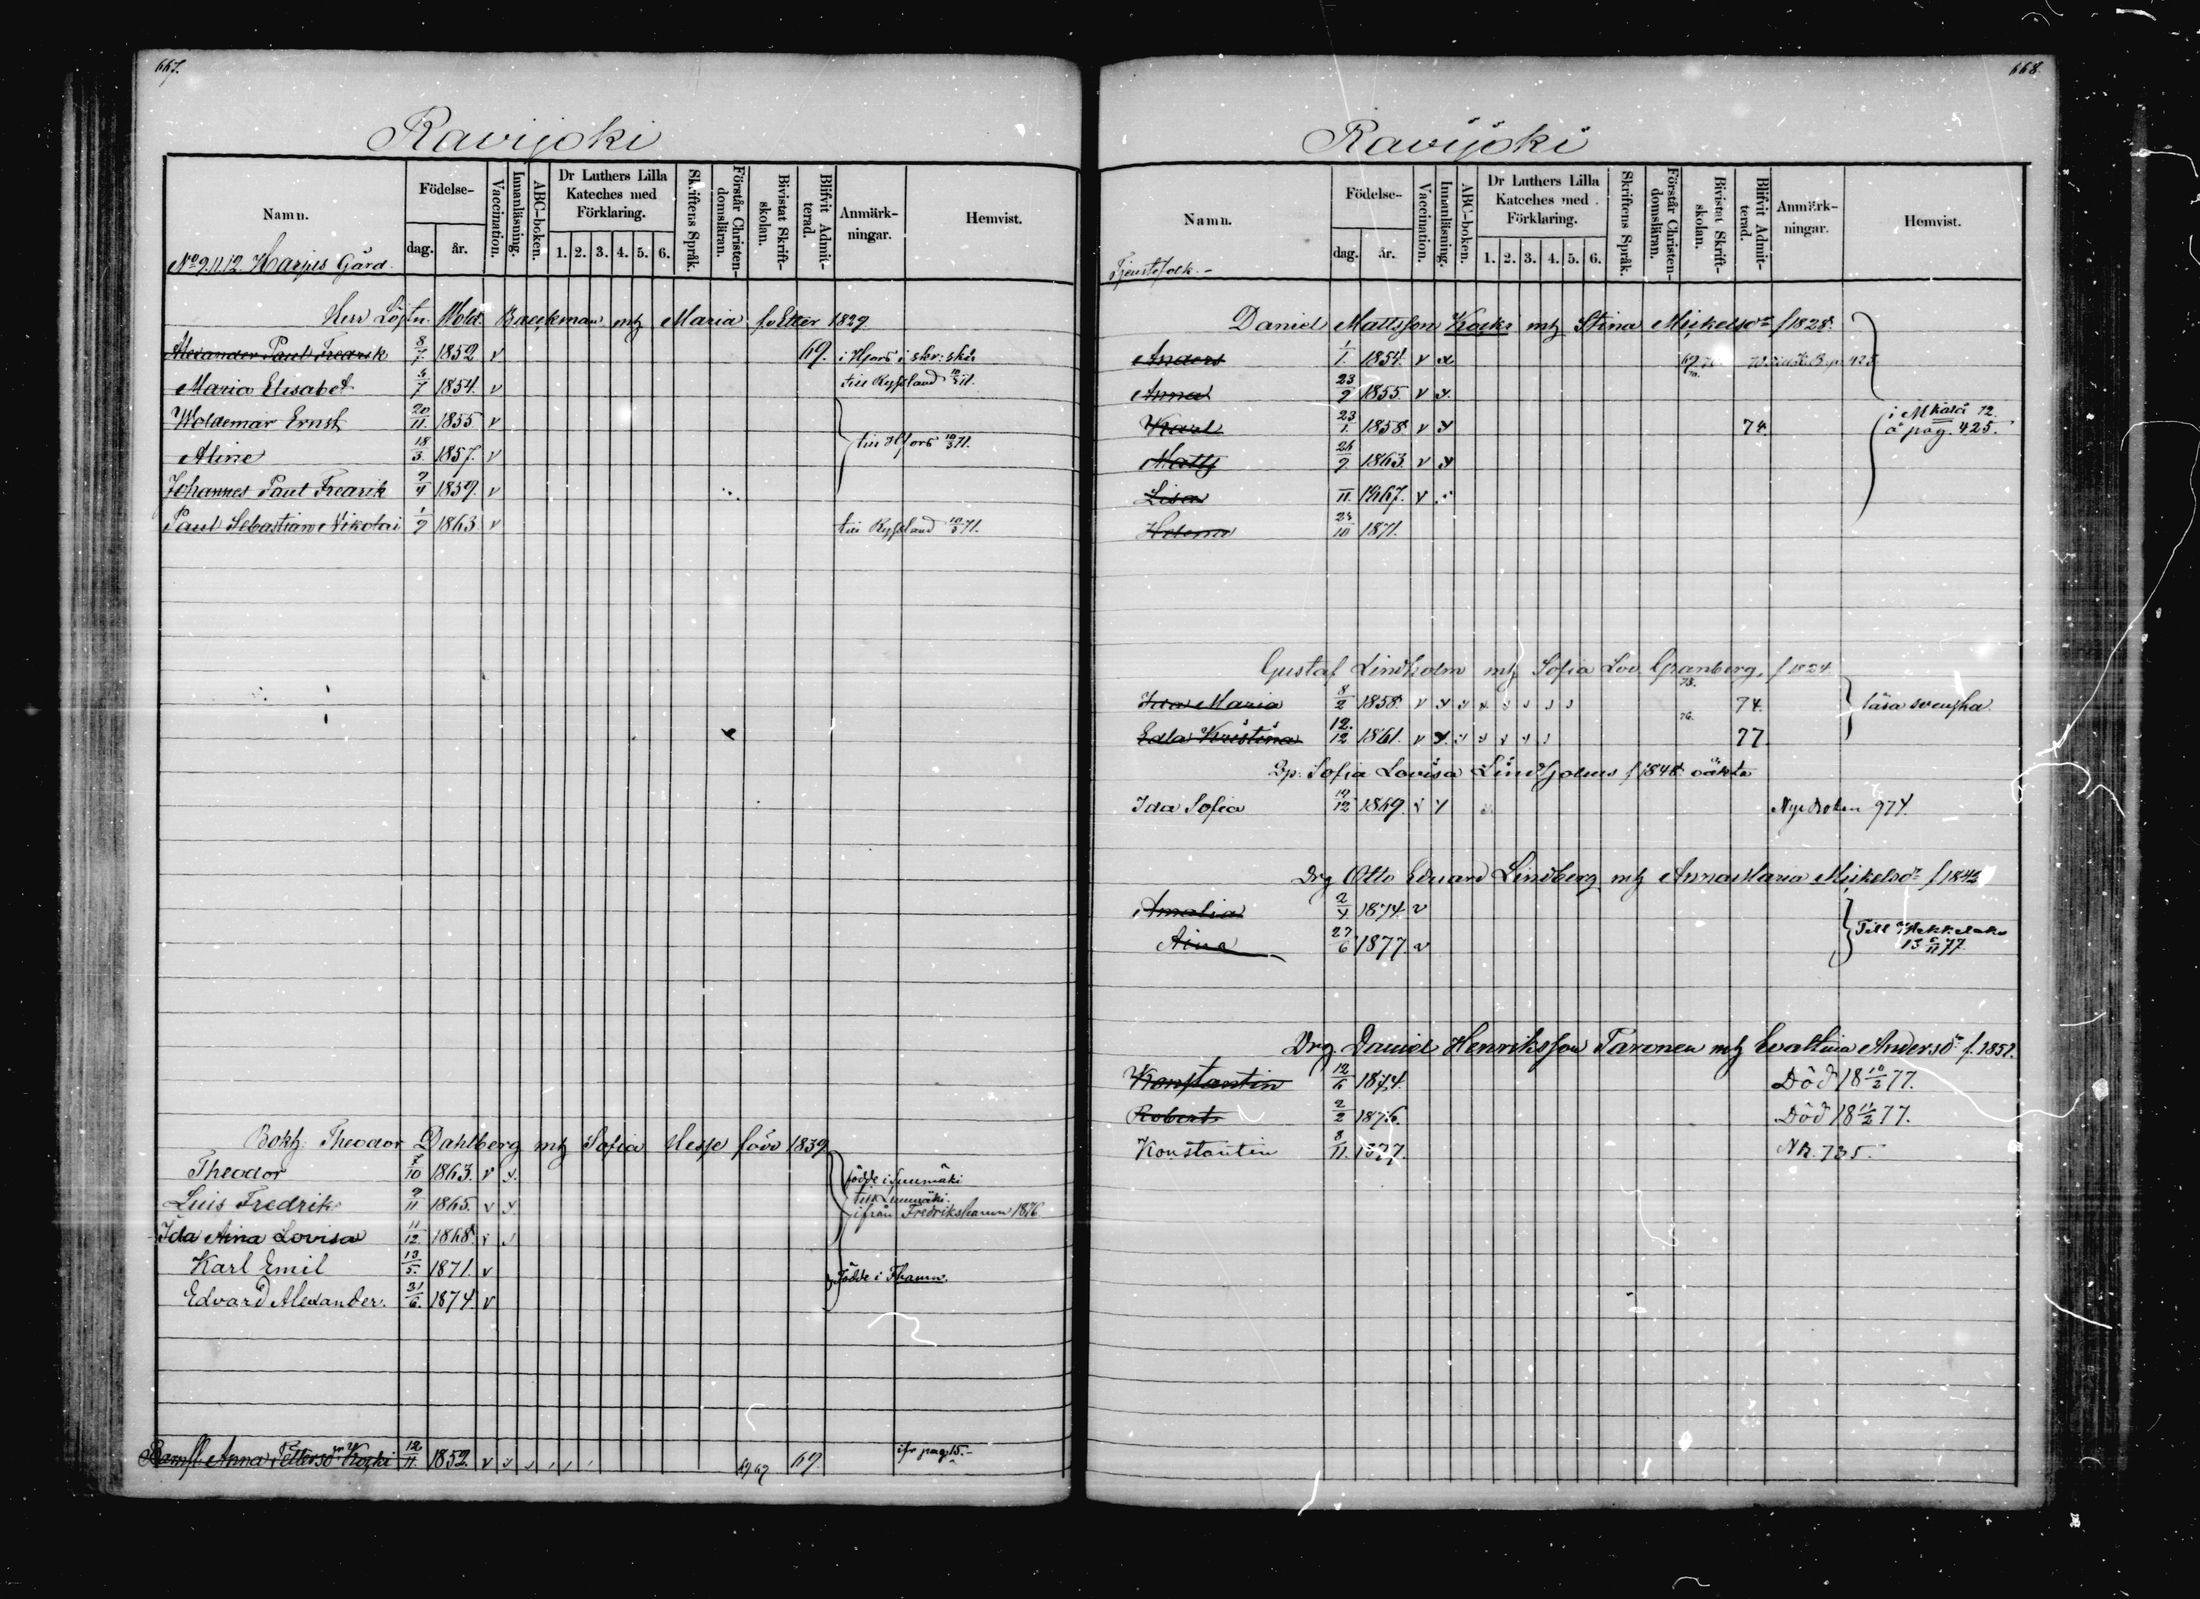 667.
Ravijoki
Namn.
Födelse-
dag.
år.
Vaccination.
Innanläsning.
ABC-boken.
Dr Luthers Lilla
Kateches med
Förklaring.
1. 2. 3. 4. 5. 6.
Skriftens Språk.
Förstår Christen-
domsläran.
Bivistat Skrift-
skolan.
Blifvit Admit-
terad.
Anmärk-
ningar.
Hemvist.
No 9.11.12. Harpis Gård.
Herr Löjtn. Wold. Baeckman mtz Maria f. v Etter 1829
Alexander Paul Fredrik 8/7 1852 v 69. i Hfors i skr: skol
Maria Elisabet 6/7 1854. v till Ryssland 10/3 71.
Woldemar Ernst 20/11 1855. v
Aline 18/3 1857. v till Hfors 10/3 71.
Johannes Paul Fredrik 9/4 1859. v
Paul Sebastian Nikolai 1/9 1863 v till Ryssland 10/3 71.
Bokh. Theodor Dahlberg mtz Sofia Hesse född 1839
Theodor 7/10 1863. v x.
födde i Luumäki
till Luumäki.
Luis Fredrik 9/11 1865. v x.
ifrån Fredrikshamn 1876
Ida Aina Lovisa 11/12 1868.
Karl Emil 13/5. 1871. v
Födde i Fhamn.
Edvard Alexander. 21/6. 1874. v
Anna Pettersdr Koski 12/11. 1852 v 69 69 69. ifr pag 15.-
668.
Ravijoki
Namn.
Födelse-
dag.
år.
Vaccination.
Innanläsning.
ABC-boken.
Dr Luthers Lilla
Kateches med
Förklaring.
1. 2. 3. 4. 5. 6.
Skriftens Språk.
Förstår Christen-
domsläran.
Bivistat Skrift-
skolan.
Blifvit Admit-
terad.
Anmärk-
ningar.
Hemvist.
Tjenstefolk.-
Daniel Mattsson Koski mtz Stina Mickelsdr f 1828.
Anders 1/1. 1854. v x
Anna 23/9 1855 v x.
Karl 23/1. 1858 v x 74.
i Mkala 72.
å pag. 425.
Matts 26/9 1863. v x
Lisa 11. 1867. v
Helena 10 1871.
Gustaf Lindholm mtz Sofia Lov. Granberg. f 1824
Ida Maria 8/2 1858. v x 73. 74. läsa svenska.
Edla Kristina 12./12 1861. v x. 76. 77
Dp. Sofia Lovisa Lindholms f 1848. oäkta
Ida Sofia 19/12 1869. Nya boken 974.
Drg Otto Eduard Lindberg mtz Anna Maria Mickelsdr f 1843
Amalia 2/4 1874. v
Aina 27/6 1877. v
Till Wekkelaks
13 5/11 77.
Drg. Daniel Henriksson Taronen mtz Eva Stina Andersdr f. 1852.
Konstantin 12/6 1874. Död 18 10/2 77.
Robert 2/2 1876. Död 18 11/2 77.
Konstantin 8/11. 1877. Nb. 735.